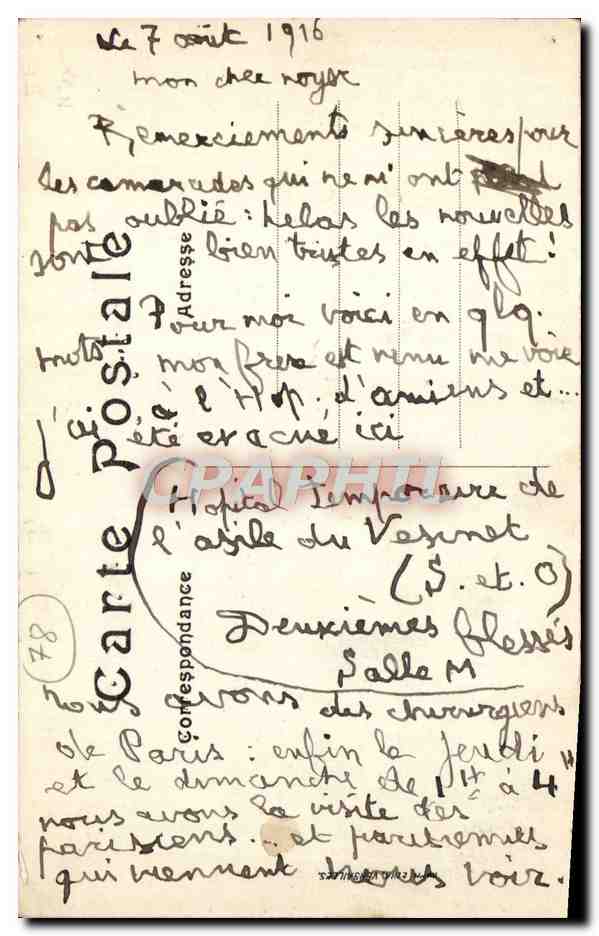 Le 7 août 1916
mon cher noyer
Remerciements sincères pour
les camarades qui ne m'ont
pas oublié : helas les nouvelles
sont bien tristes en effet !
Pour moi voici en qlq.
mots. mon frere est venu me voir
à l'Hop. d'amiens et...
été evacué ici
Hopital Temporaire de
l'asile du Vesinet
(S. et. O)
Deuxièmes blessés
Salle M
nous avons des chirurgiens
de Paris : enfin le Jeudi
et le dimanche de 1H à 4H
nous avons la visite des
parisiens... et parisiennes
qui viennent nous voir.
Carte Postale
Adresse
Correspondance
78
CPAPHIL